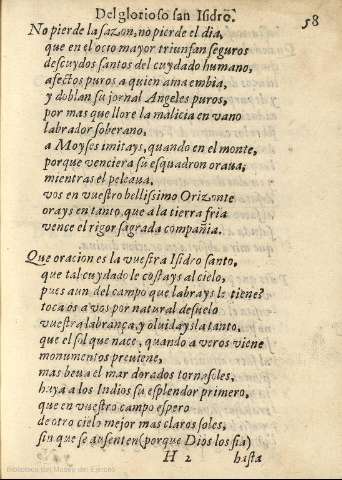 Del glorioso san Isidro.
58
No pierde la sazon, no pierde el dia,
que en el ocio mayor triunfan seguros
descuydos santos del cuydado humano,
afectos puros a quien ama embia,
y doblan su jornal Angeles puros,
por mas que llore la malicia en vano
labrador soberano,
a Moyses imitays, quando en el monte,
porque venciera su esquadron oraua,
mientras el peleaua,
vos en vuestro bellissimo Orizonte
orays en tanto, que à la tierra fria
vence el rigor sagrada compañia.
Que oracion es la vuestra Isidro santo,
que tal cuydado le costays al cielo,
pues aun del campo que labrays le tiene?
toca os a vos por natural desuelo
vuestra labrança, y oluidays la tanto,
que el sol que nace, quando a veros viene
monumentos preuiene,
mas beua el mar dorados tornasoles,
huya a los Indios su esplendor primero,
que en vuestro campo espero
de otro cielo mejor mas claros soles,
sin que se ausenten (porque Dios los fia)
H 2
hasta
Biblioteca del Museo del Ejército